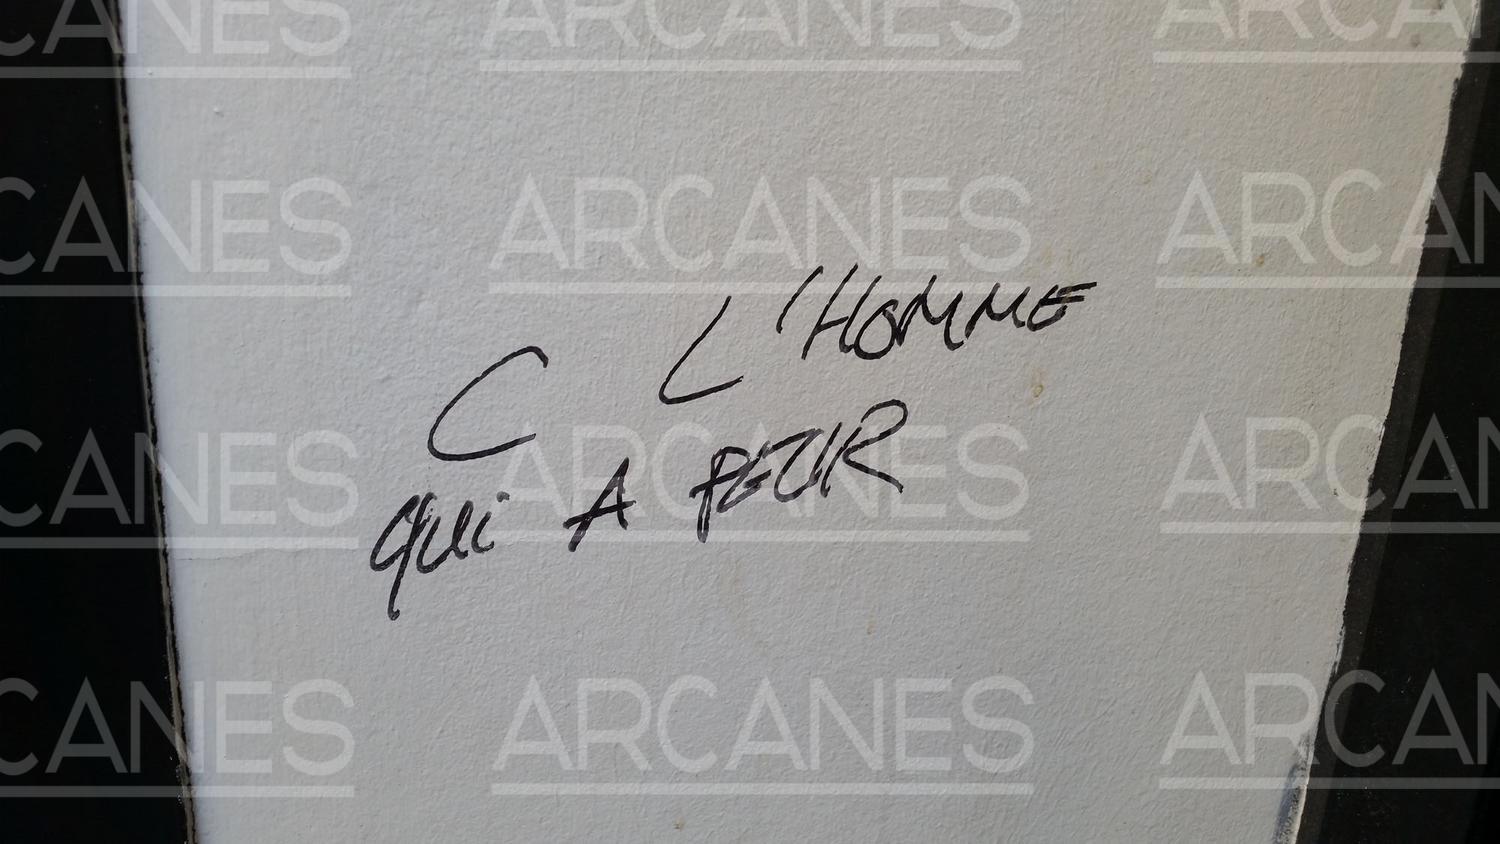 C L'HOMME
QUI A PEUR
ARCANES ARCANES ARCANES
ARCANES ARCANES ARCANES
ARCANES ARCANES ARCANES
ARCANES ARCANES ARCANES